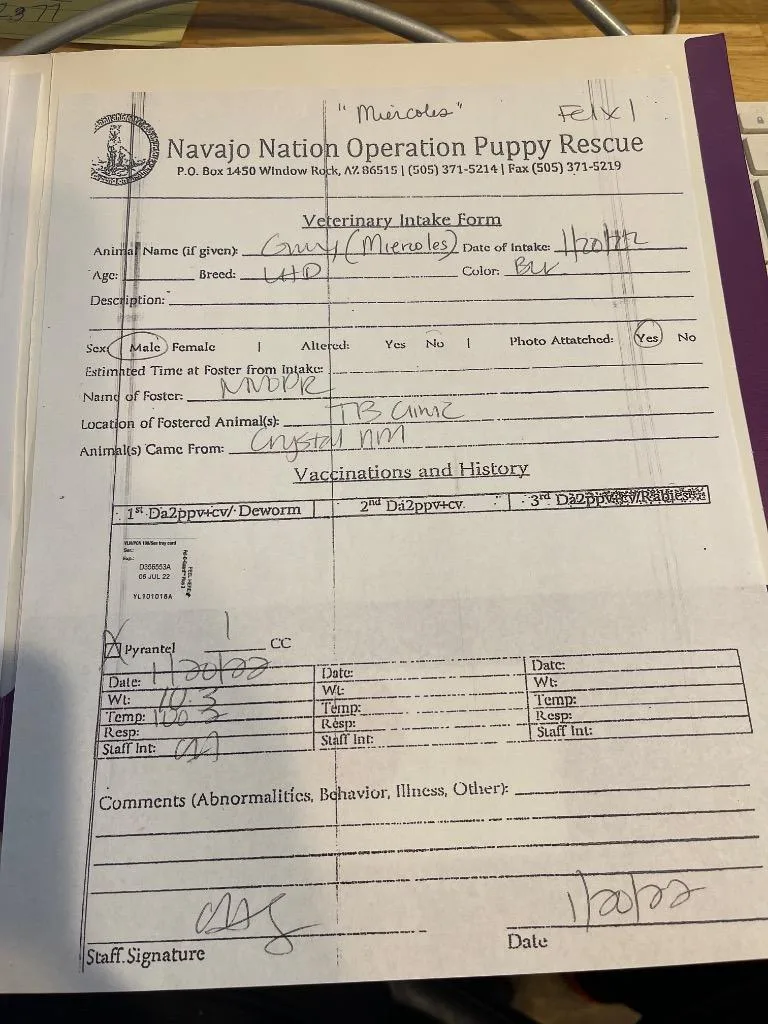 2377
"Miercoles" Felix 1
Navajo Nation Operation Puppy Rescue
P.O. Box 1450 Window Rock, AZ 86515 | (505) 371-5214 | Fax (505) 371-5219
Veterinary Intake Form
Animal Name (if given): (Miercoles) Date of Intake: 1/20/22
Age: Breed: Color:
Description:
Sex: Male Female | Altered: Yes No | Photo Attatched: Yes No
Estimated Time at Foster from Intake:
Name of Foster: NNOPR
Location of Fostered Animal(s): TB Clinic
Animal(s) Came From: Crystal NM
Vaccinations and History
1st Da2ppv+cv/ Deworm 2nd Da2ppv+cv. 3rd Da2ppv+cv/Rabies
Sex:
Exp.:
D356553A
06 JUL 22
YL101018A
Pyrantel 1 CC
Date: 1/20/22 Date: Date:
Wt: 10.3 Wt: Wt:
Temp: 100.2 Temp: Temp:
Resp: Resp: Resp:
Staff Int: Staff Int: Staff Int:
Comments (Abnormalities, Behavior, Illness, Other):
1/20/22
Staff Signature Date